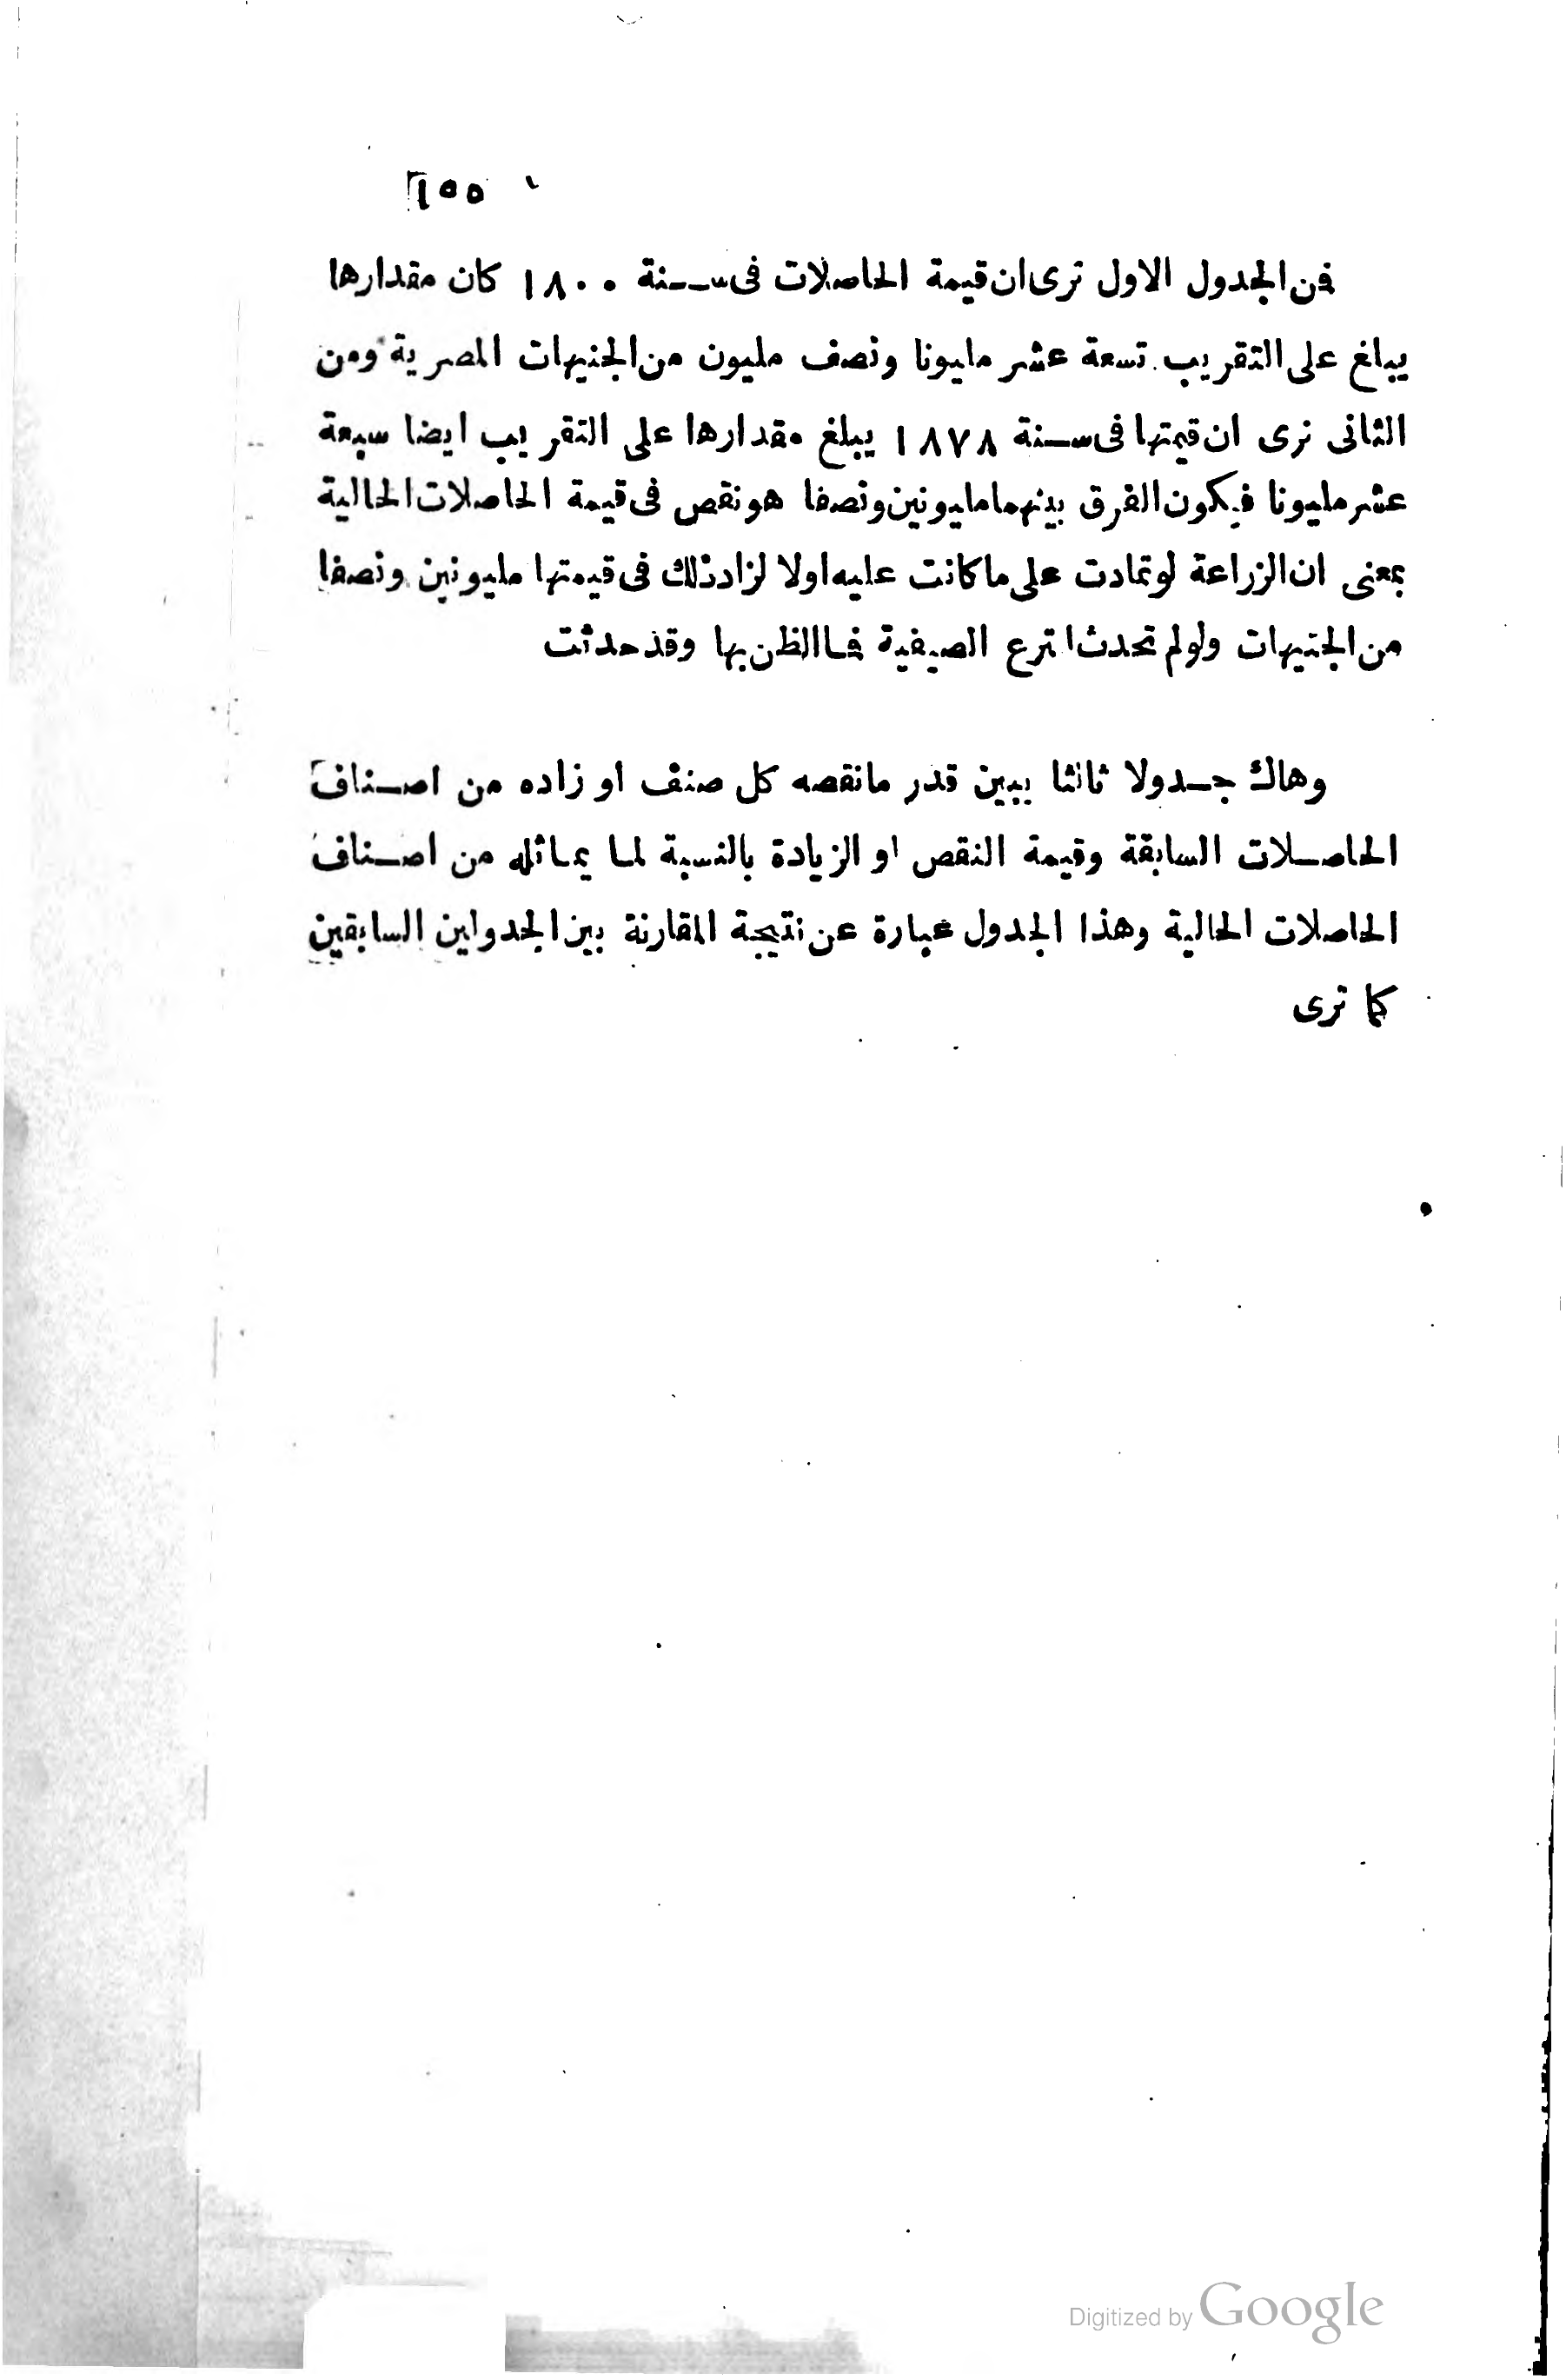 ١٥٥
فمن الجدول الاول ترى ان قيمة الحاصلات فى سنة ١٨٠٠ كان مقدارها
يبلغ على التقريب تسعة عشر مليونا ونصف مليون من الجنيهات المصرية ومن
الثانى نرى ان قيمتها فى سنة ١٨٧٨ يبلغ مقدارها على التقريب ايضا سبعة
عشر مليونا فيكون الفرق بينهما مليونين ونصفا هو نقص فى قيمة الحاصلات الحالية
بمعنى ان الزراعة لو تمادت على ما كانت عليه اولا لزاد ذلك فى قيمتها مليونين ونصفا
من الجنيهات ولو لم تحدث الترع الصيفية فما الظن بها وقد حدثت
وهاك جدولا ثالثا يبين قدر ما نقصه كل صنف او زاده من اصناف
الحاصلات السابقة وقيمة النقص او الزيادة بالنسبة لما يماثله من اصناف
الحاصلات الحالية وهذا الجدول عبارة عن نتيجة المقارنة بين الجدولين السابقين
كما ترى
Digitized by Google